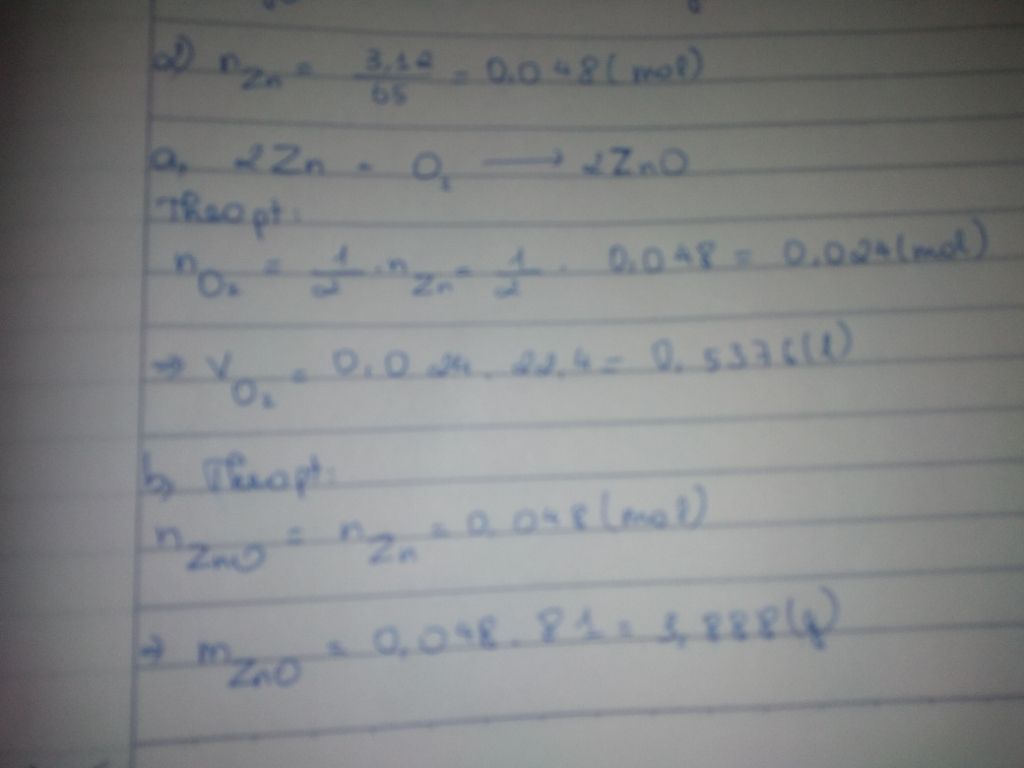 2) n Zn = 3,12/65 = 0,048 (mol)
a, 2Zn + O₂ → 2ZnO
Theo pt:
n O₂ = 1/2 . n Zn = 1/2 . 0,048 = 0,024 (mol)
⇒ V O₂ = 0,024 . 22,4 = 0,5376 (l)
b, Theo pt:
n ZnO = n Zn = 0,048 (mol)
⇒ m ZnO = 0,048 . 81 = 3,888 (g)